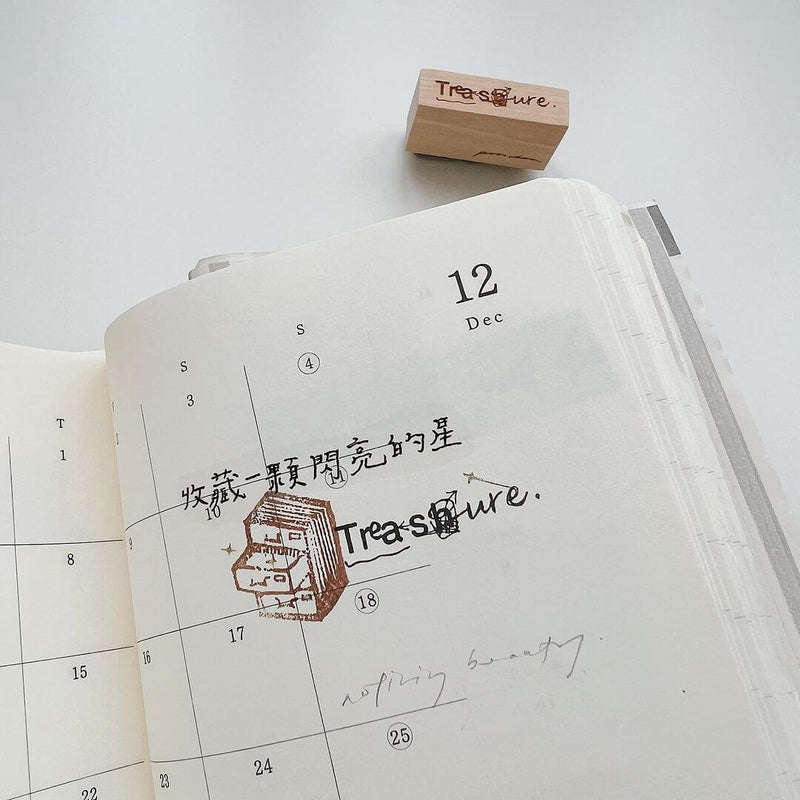 Treasure.
12
Dec
T
S
S
1
3
4
收藏一顆閃亮的星
8
9
10
11
Treasure.
15
16
17
18
noticing beauty.
22
23
24
25